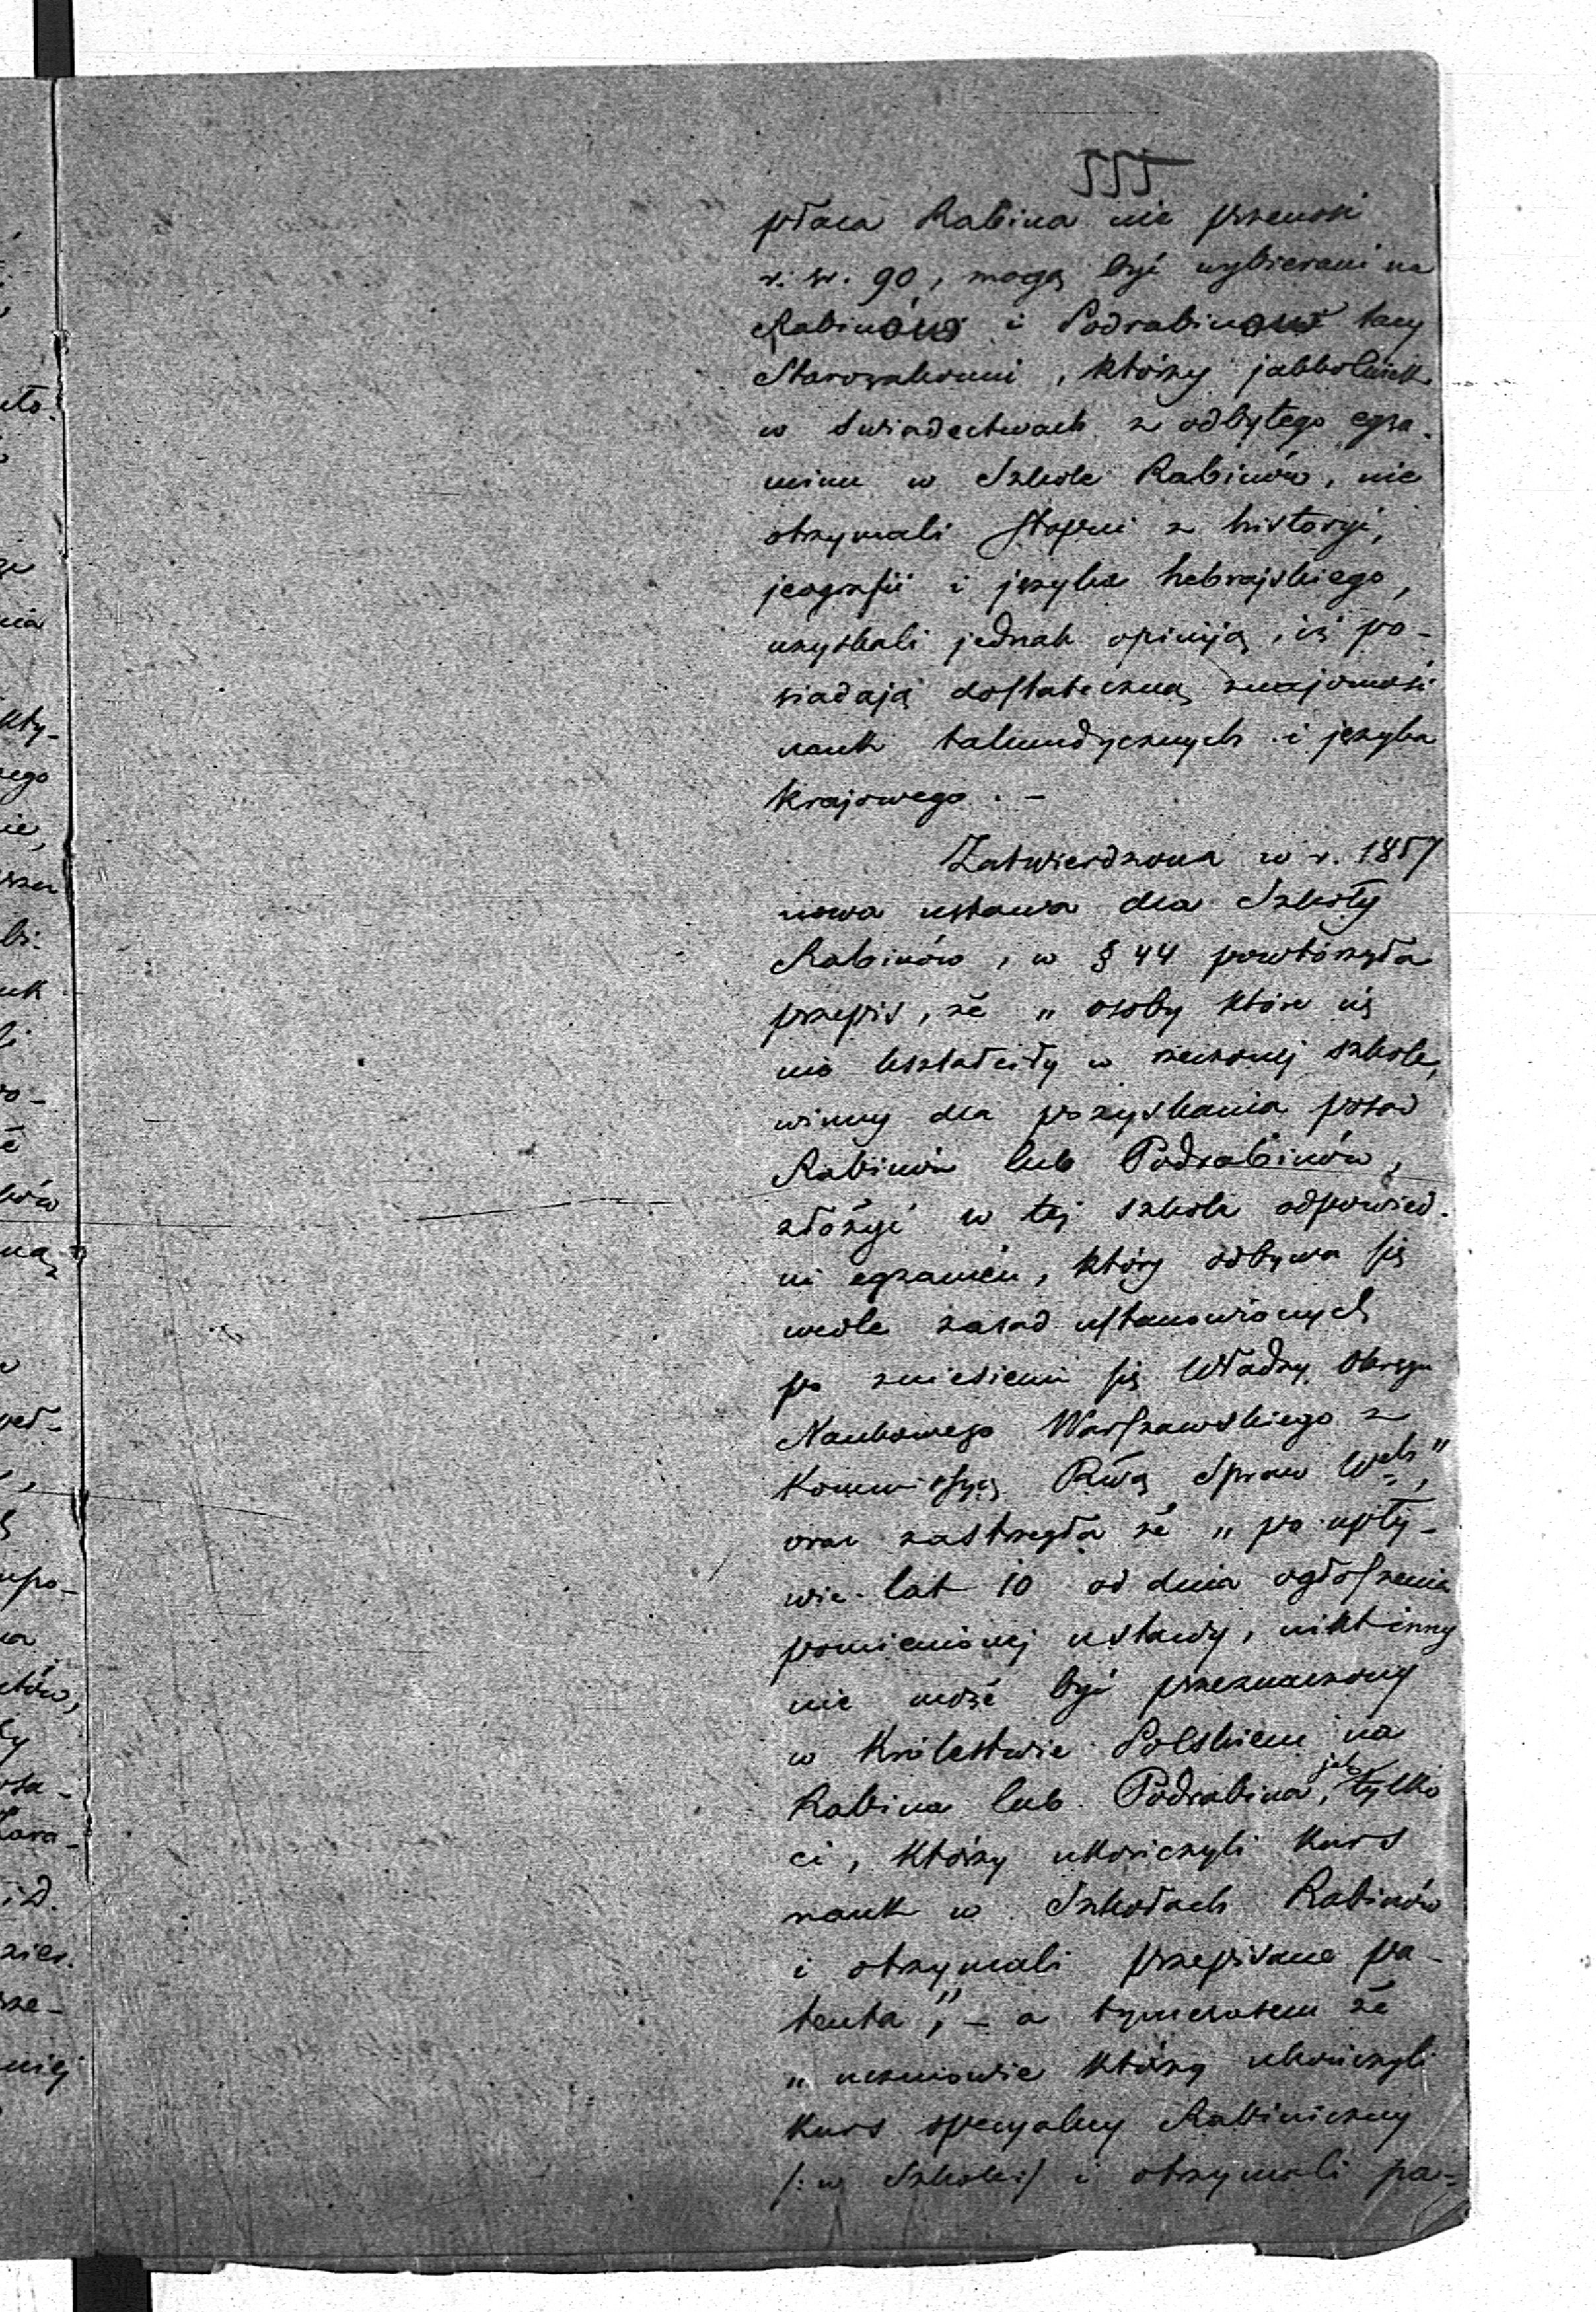 555
płaca Rabina nie przenosi
r. sr. 90, mogą być wybierani na
Rabinów i Podrabinów tacy
Starozakonni, którzy jakkolwiek
w świadectwach z odbytego egza-
minu w Szkole Rabinów, nie
otrzymali stopni z historyi,
jeografii i języka hebrajskiego,
uzyskali jednak opiniją, iż po-
siadają dostateczną znajomość
nauk talmudycznych i języka
krajowego. –
Zatwierdzona w r. 1857
nowa ustawa dla Szkoły
Rabinów, w § 44 powtórzyła
przepis, że „osoby które się
nie kształciły w rzeczonej szkole,
winny dla pozyskania posad
Rabinów lub Podrabinów,
złożyć w tej szkole odpowied-
ni egzamen, który odbywa się
wedle zasad ustanowionych
po zniesieniu się Władzy Okręgu
Naukowego Warszawskiego z
Kommissyą Rwą Spraw Wch",
oraz zastrzegła że „po upły-
wie lat 10 od dnia ogłoszenia
pomienionej ustawy, nikt inny
nie może być przeznaczony
w Królestwie Polskiem na
Rabina lub Podrabina, jak tylko
ci, którzy ukończyli kurs
nauk w Szkołach Rabinów
i otrzymali przepisane pa-
tenta", – a tymczasem że
„uczniowie którzy ukończyli
kurs specyalny Rabiniczny
/: w Szkole :/ i otrzymali pa-